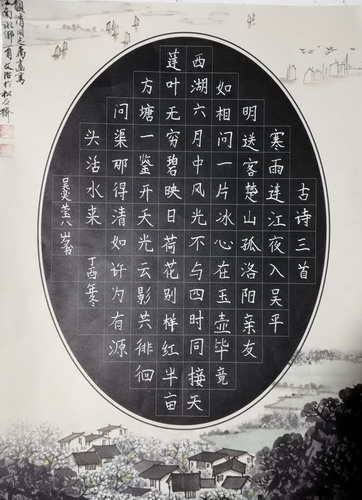 古诗三首
寒雨连江夜入吴平
明送客楚山孤洛阳亲友
如相问一片冰心在玉壶毕竟
西湖六月中风光不与四时同接天
莲叶无穷碧映日荷花别样红半亩
方塘一鉴开天光云影共徘徊
问渠那得清如许为有源
头活水来 丁酉年冬
吴 莹八岁书